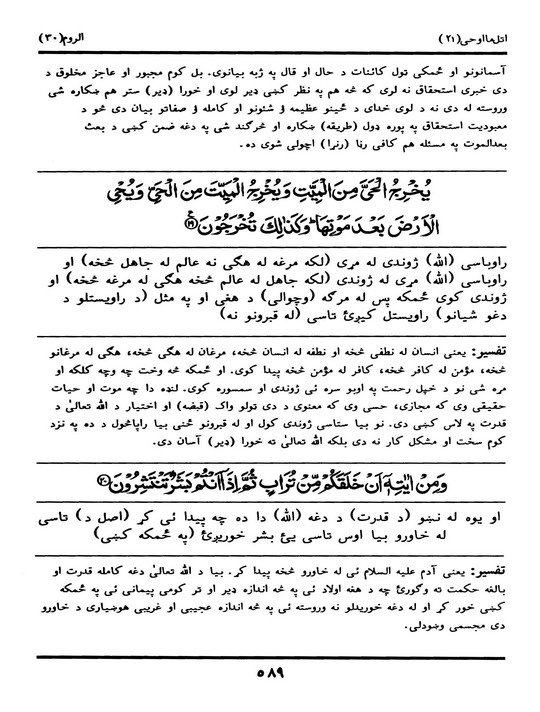 اتل ما اوحی (۲۱)
الروم (۳۰)
آسمانونو او ځمکې ټول کائنات د حال او قال په ژبه بیانوی. بل کوم مجبور او عاجز مخلوق د
دی خبری استحقاق نه لری که څه هم په نظر کښی ډیر لوی او خورا (ډیر) ستر هم ښکاره شی
وروسته له دی نه د لوی خدای د ځینو عظیمه ؤ شئونو او کامله ؤ صفاتو بیان دی څو د
معبودیت استحقاق په پوره ډول (طریقه) ښکاره او څرگند شی په دغه ضمن کښی د بعث
بعدالموت په مسئله هم کافی رڼا (رنرا) اچولی شوی ده.
يُخْرِجُ الْحَيَّ مِنَ الْمَيِّتِ وَيُخْرِجُ الْمَيِّتَ مِنَ الْحَيِّ وَيُحْيِ
الْاَرْضَ بَعْدَ مَوْتِهَا ۭ وَكَذٰلِكَ تُخْرَجُوْنَ ﴿۱۹﴾
راوباسی (الله) ژوندی له مړی (لکه مرغه له هګی نه عالم له جاهل څخه) او
راوباسی (الله) مړی له ژوندی (لکه جاهل له عالم څخه هګی له مرغه څخه) او
ژوندی کوی ځمکه پس له مرګه (وچوالی) د هغی او په مثل (د راویستلو د
دغو شیانو) راویستل کیږئ تاسی (له قبرونو نه)
تفسیر: یعنی انسان له نطفی څخه او نطفه له انسان څخه، مرغان له هګی څخه، هګی له مرغانو
څخه، مؤمن له کافر څخه، کافر له مؤمن څخه پیدا کوی. او ځمکه څه وخت چه وچه کلکه او
مړه شی نو د خپل رحمت په اوبو سره ئی ژوندی او سمسوره کوی. لنډه دا چه موت او حیات
حقیقی وی که مجازی، حسی وی که معنوی د دی ټولو واک (قبضه) او اختیار د الله تعالیٰ د
قدرت په لاس کښی دی. نو بیا ستاسی ژوندی کول او له قبرونو ځنی بیا راپاڅول د ده په نزد
کوم سخت او مشکل کار نه دی بلکه الله تعالیٰ ته خورا (ډیر) آسان دی.
وَمِنْ اٰيٰتِهٖٓ اَنْ خَلَقَكُمْ مِّنْ تُرَابٍ ثُمَّ اِذَآ اَنْتُمْ بَشَرٌ تَنْتَشِرُوْنَ ﴿۲۰﴾
او یوه له نښو (د قدرت) د دغه (الله) دا ده چه پیدا ئی کړ (اصل د) تاسی
له خاورو بیا اوس تاسی یئ بشر خوریږئ (په ځمکه کښی)
تفسیر: یعنی آدم علیه السلام ئی له خاورو څخه پیدا کړ. بیا د الله تعالیٰ دغه کامله قدرت او
بالغه حکمت ته وګورئ چه د هغه اولاد ئی په څه اندازه ډیر او تر کومی پیمانی ئی په ځمکه
کښی خور کړ او له دغه خوریدلو نه وروسته ئی په څه اندازه عجیبی او غریبی هوښیاری د خاورو
دی مجسمی وښودلی.
۵۸۹